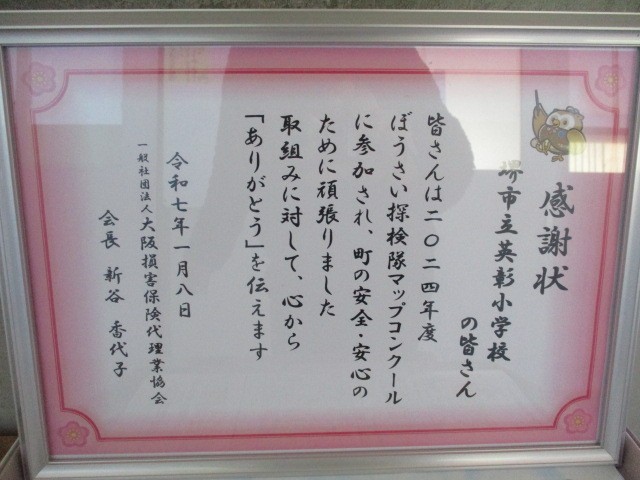 感謝状
堺市立英彰小学校
の皆さん
皆さんは二〇二四年度
ぼうさい探検隊マップコンクール
に参加され、町の安全・安心の
ために頑張りました
取組みに対して、心から
「ありがとう」を伝えます
令和七年一月八日
一般社団法人大阪損害保険代理業協会
会長 新谷 香代子